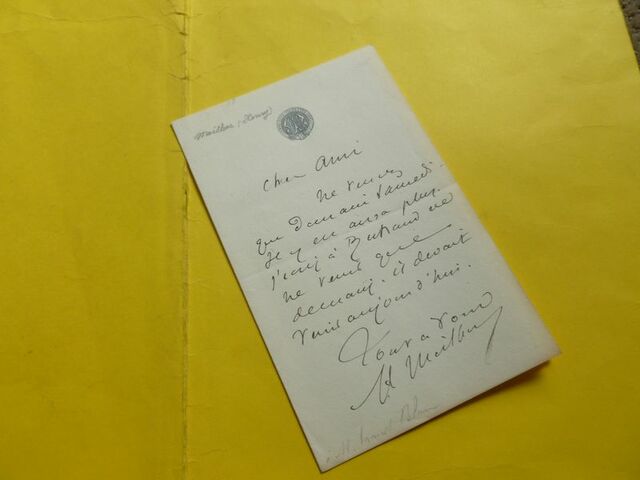 Meilhac (Henry)
Cher Ami
Ne venez
que demain Samedi.
Il y en aura plus.
J'écris à Bertrand de
ne venir que
demain. il devait
venir aujourd'hui.
Tout à vous
H Meilhac